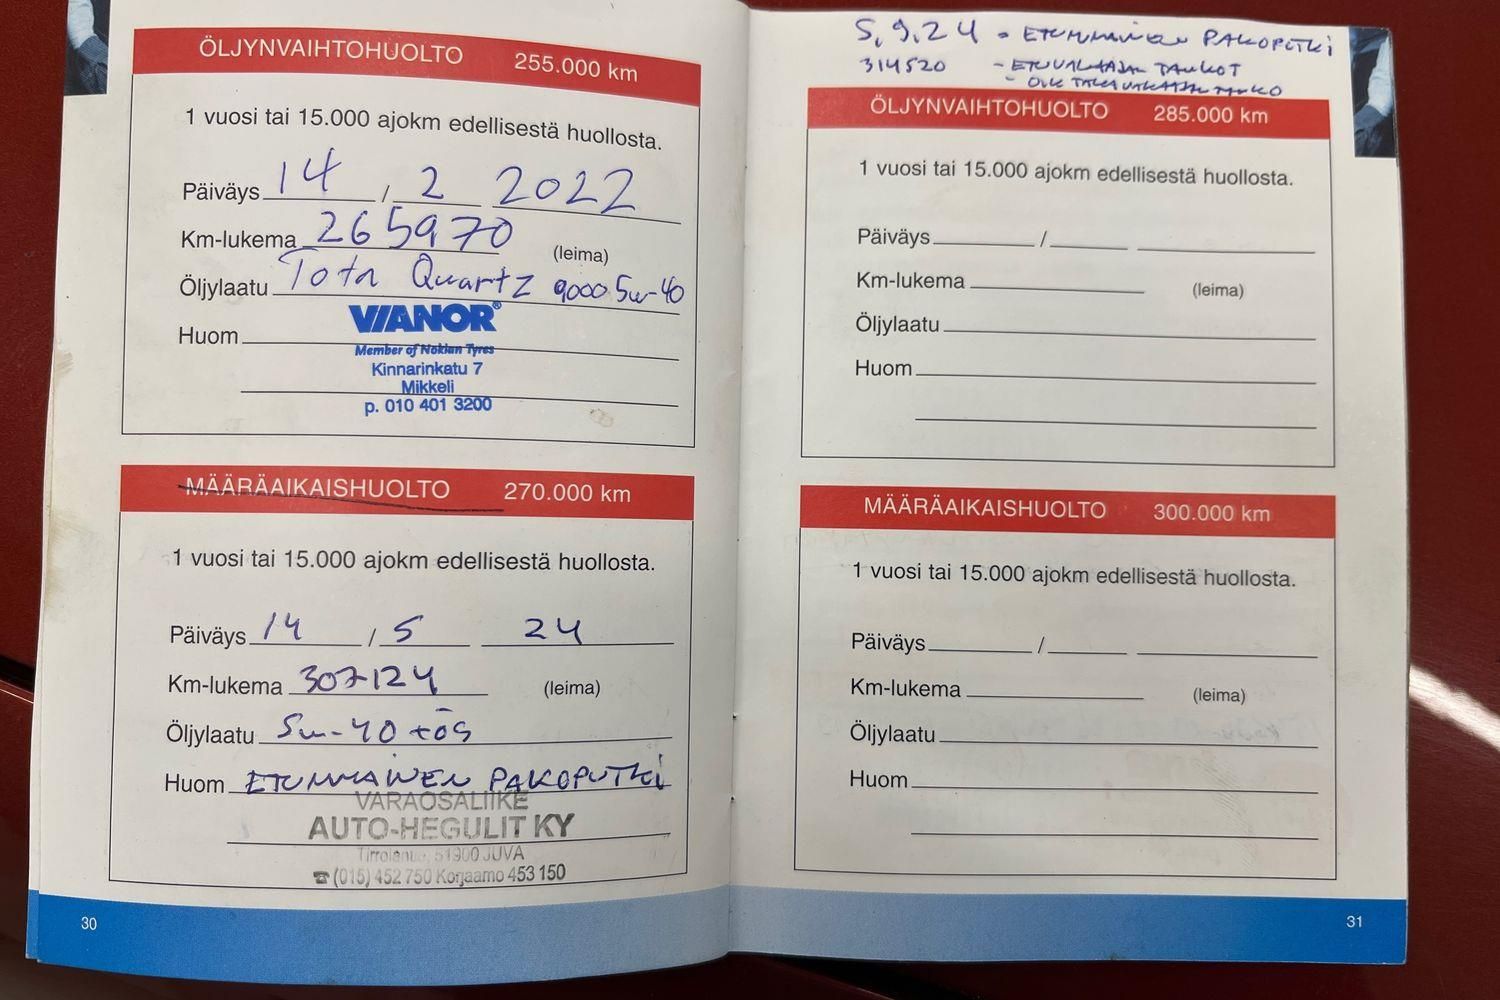 ÖLJYNVAIHTOHUOLTO 255.000 km
1 vuosi tai 15.000 ajokm edellisestä huollosta.
Päiväys 14 / 2 2022
Km-lukema 265970 (leima)
Öljylaatu Total Quartz 9000 5w-40
Huom
VIANOR®
Member of Nokian Tyres
Kinnarinkatu 7
Mikkeli
p. 010 401 3200
MÄÄRÄAIKAISHUOLTO 270.000 km
1 vuosi tai 15.000 ajokm edellisestä huollosta.
Päiväys 14 / 5 24
Km-lukema 307124 (leima)
Öljylaatu 5w-40 +ös
Huom ETUMMAINEN PAKOPUTKI
VARAOSALIIKE
AUTO-HEGULIT KY
51900 JUVA
☎ (015) 452 750 Korjaamo 453 150
30
5,9,24 - ETUMMAINEN PAKOPUTKI
314520 - ETUVAKAAJAN TANKOT
- OIK TAKAVAKAAJAN TANKO
ÖLJYNVAIHTOHUOLTO 285.000 km
1 vuosi tai 15.000 ajokm edellisestä huollosta.
Päiväys /
Km-lukema (leima)
Öljylaatu
Huom
MÄÄRÄAIKAISHUOLTO 300.000 km
1 vuosi tai 15.000 ajokm edellisestä huollosta.
Päiväys /
Km-lukema (leima)
Öljylaatu
Huom
31